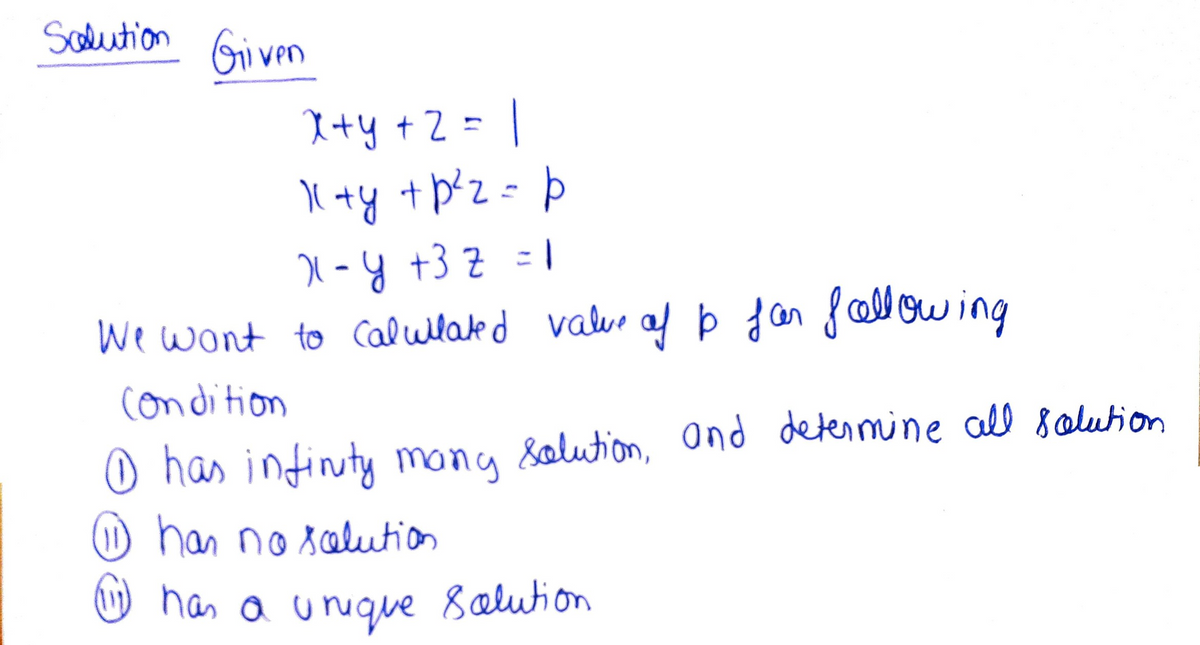 Solution Given
x+y+z = 1
x+y+p²z = p
x-y+3z = 1
We want to Calullated value of p for following
condition
① has infinity many solution, and determine all solution
ⅱ has no solution
ⅲ has a unique solution